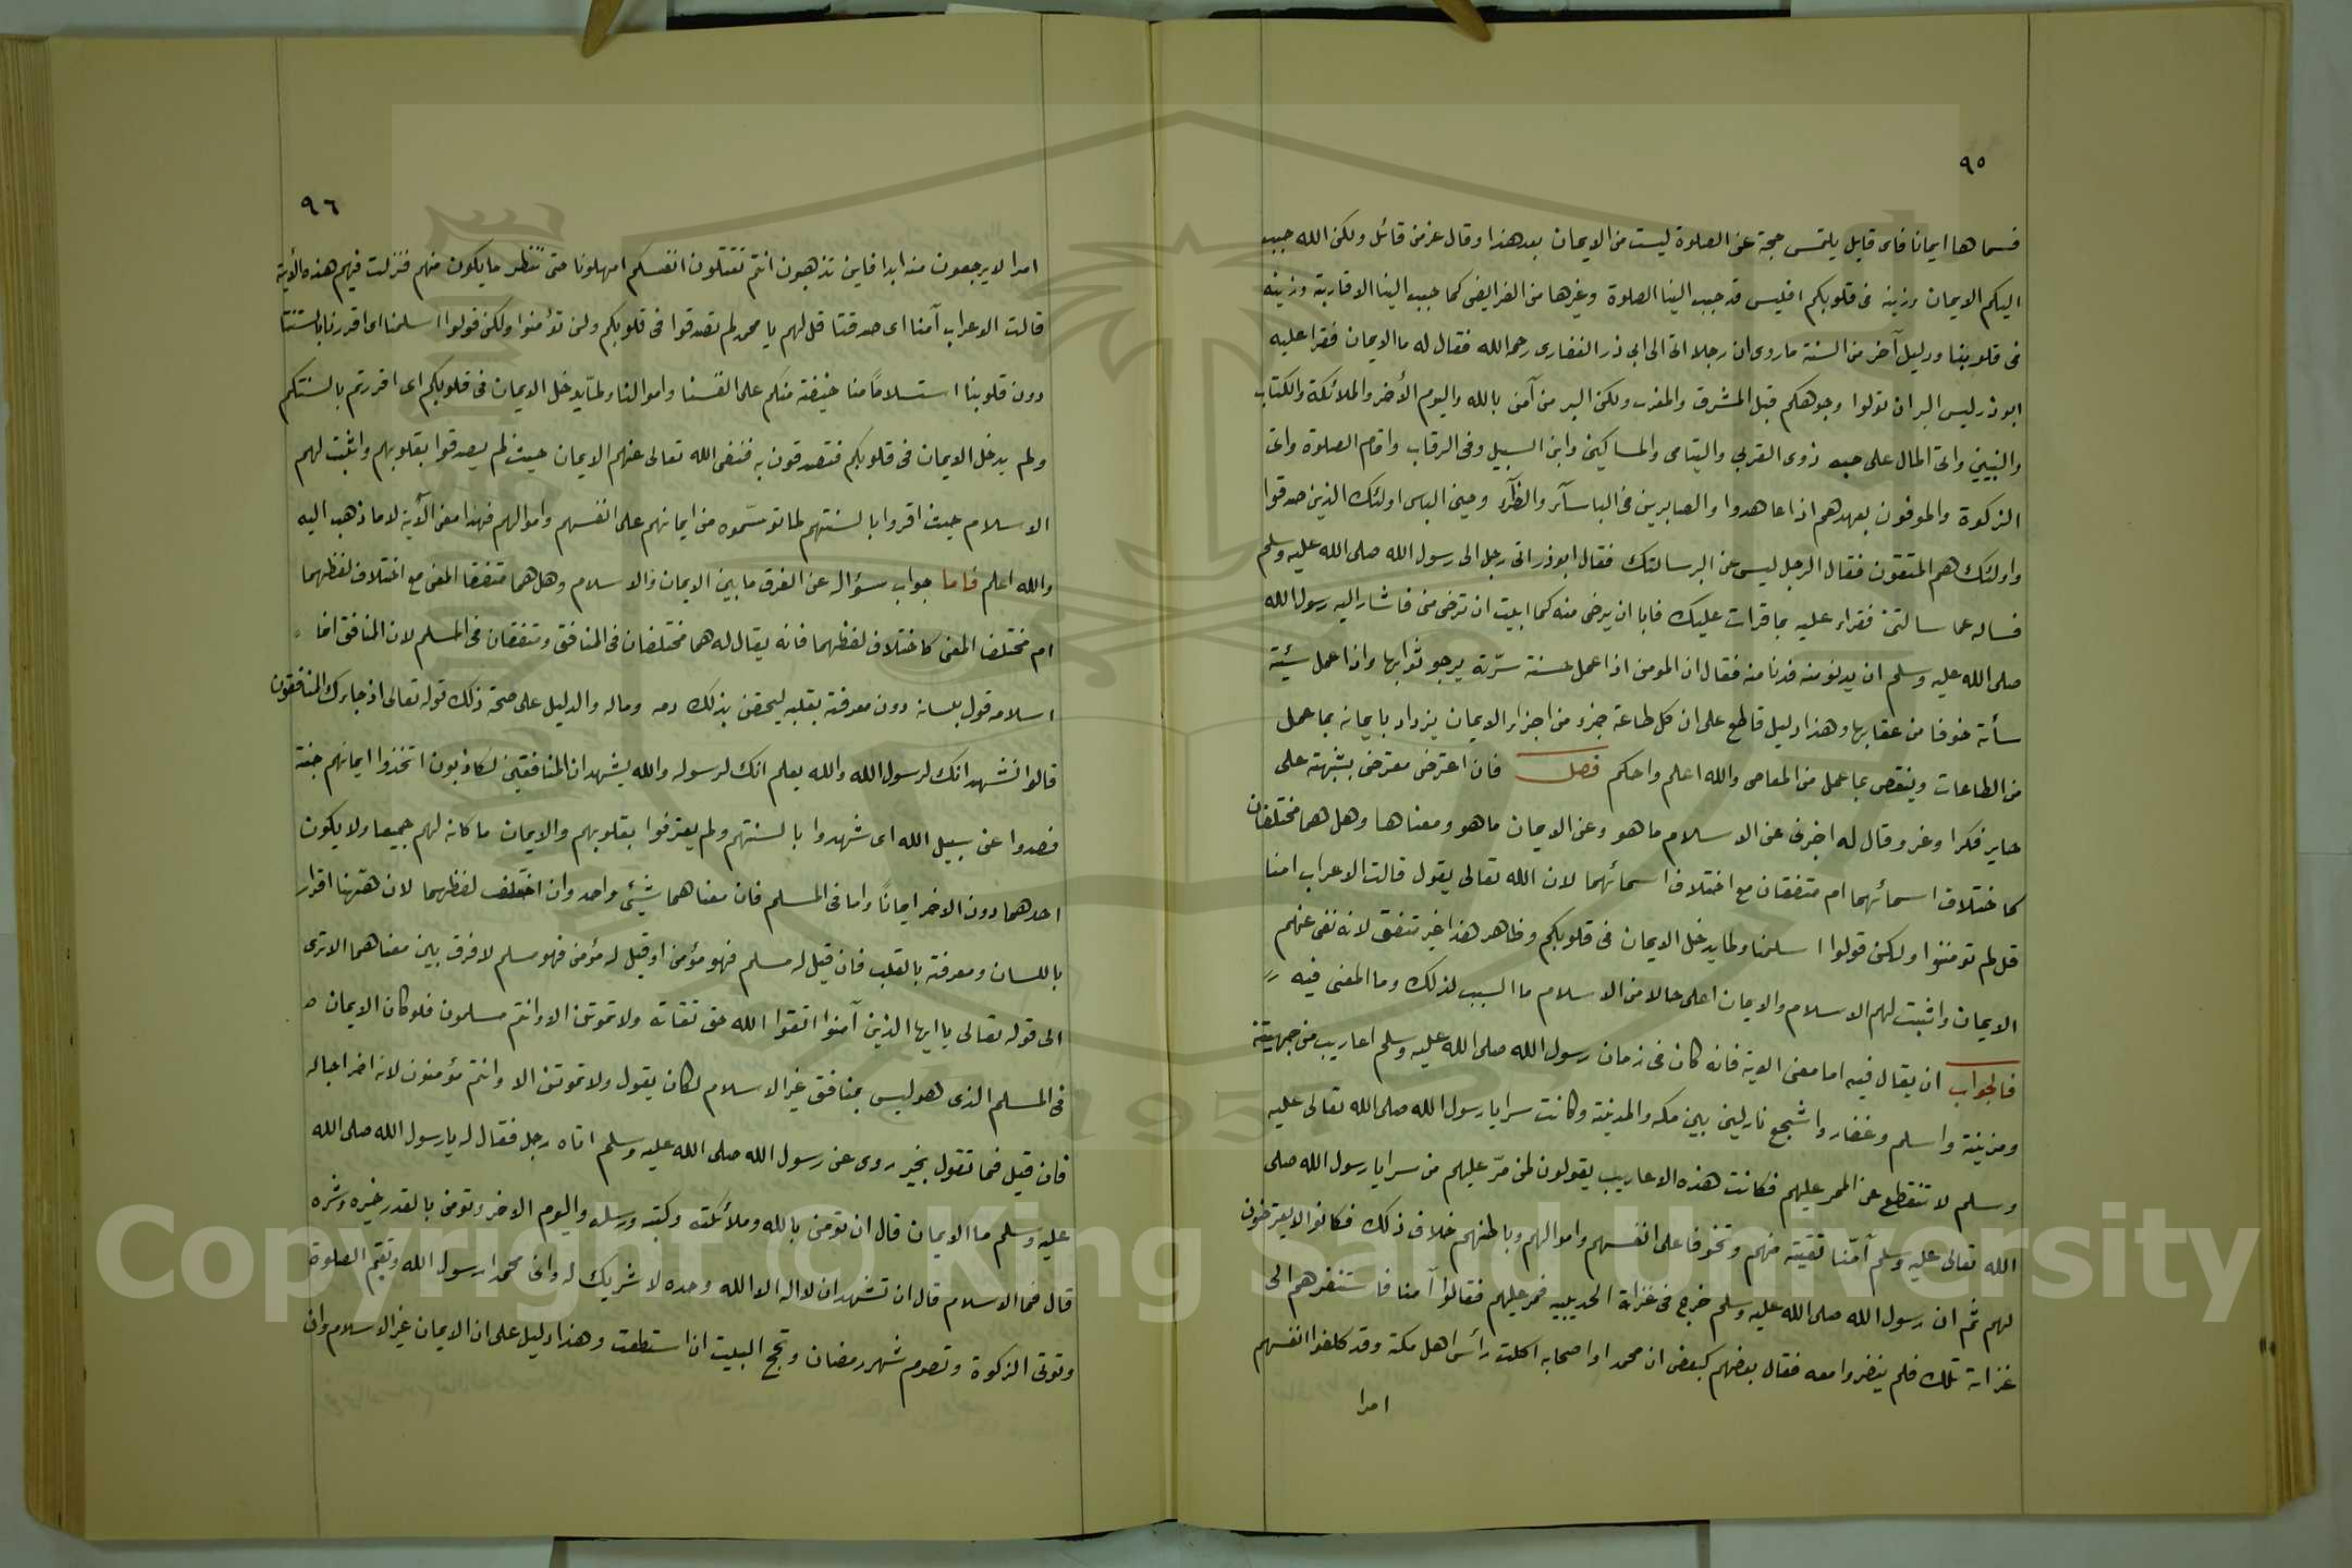 ٩٥
فسماها ايمانا فاى قايل يلتمس حجة عن الصلوة ليست من الايمان بعد هذا وقال عز من قائل ولكن الله حبب
اليكم الايمان وزينه فى قلوبكم افليس قد حبب الينا الصلوة وغيرها من الفرايض كما حبب الينا الاقاربة وزينه
فى قلوبنا ودليل آخر من السنة ماروى ان رجلا اتى الى ابي ذر الغفارى رحمه الله فقال له ما الايمان فقرا عليه
ابوذر ليس البر ان تولوا وجوهكم قبل المشرق والمغرب ولكن البر من آمن بالله واليوم الأخر والملائكة والكتاب
والنبيين واتى المال على حبه ذوى القربى واليتامى والمساكين وابن السبيل وفى الرقاب واقام الصلوة واتى
الزكوة والموفون بعهدهم اذا عاهدوا والصابرين فى الباسآر والظرآر وحين الباس اولئك الذين صدقوا
واولئك هم المتقون فقال الرجل ليس عن البر سالتك فقال ابوذر اتى رجل الى رسول الله صلى الله عليه وسلم
فساله عما سالتنى فقراء عليه بما قرات عليك فابا ان يرضى منه كما ابيت ان ترضى منى فاشار اليه رسول الله
صلى الله عليه وسلم ان يدنو منه فدنا منه فقال ان المومن اذا عمل حسنة سرّته يرجو ثوابها واذا عمل سئية
سأته خوفا من عقابها وهذا دليل قاطع على ان كل طاعة جزء من اجزاء الايمان يزداد بايمانه بما عمل
من الطاعات وينقص بما عمل من المعاصى والله اعلم واحكم فصل فان اعترض معترض بشبهة على
حاير فكرا وغر وقال له اخبرنى عن الاسلام ما هو وعن الايمان ماهو ومعناها وهل هما مختلفان
كاختلاف اسمائهما ام متفقان مع اختلاف اسمائهما لان الله تعالى يقول قالت الاعراب امنا
قل لم تومنوا ولكن قولوا اسلمنا ولما يدخل الايمان فى قلوبكم وظاهر هذا غير متفق لانه نفى عنهم
الايمان واثبت لهم الاسلام والايمان اعلى حالا من الاسلام ما السبب لذلك وما المعنى فيه
فالجواب ان يقال فيه اما معنى الاية فانه كان فى زمان رسول الله صلى الله عليه وسلم اعاريب من جهينة
ومزينة واسلم وغفار واشجع نازلين بين مكه والمدينة وكانت سرايا رسول الله صلى الله تعالى عليه
وسلم لا تنقطع عن الممر عليهم فكانت هذه الاعاريب يقولون لمن مرّ عليهم من سرايا رسول الله صلى
الله تعالى عليه وسلم آمّنا تقيته منهم وتخوفا على انفسهم واموالهم وباطنهم خلاف ذلك فكانوا لا يعترضون
لهم ثم ان رسول الله صلى الله عليه وسلم خرج فى غزاة الحديبيه فمر عليهم فقالوا آمنا فاستنفرهم الى
غزاته تلك فلم ينفروا معه فقال بعضهم كبعض ان محمدا واصحابه اكلت رأس اهل مكة وقد كلفوا انفسهم
امرا
٩٦
امرا لا يرجعون منه ابدا فاين تذهبون انتم تقتلون انفسكم امهلونا حتى ننظر ما يكون منهم فنزلت فيهم هذه الأية
قالت الاعراب آمنا اى صدقنا قل لهم يا محمد لم تصدقوا فى قلوبكم ولن تؤمنوا ولكن قولوا اسلمنا اى اقررنا بالسنتنا
دون قلوبنا استسلامًا منا خيفة منكم على انفسنا واموالنا ولمّا يدخل الايمان فى قلوبكم اى اقررتم بالسنتكم
ولم يدخل الايمان فى قلوبكم فتصدقون به فنفى الله تعالى عنهم الايمان حيث لم يصدقوا بقلوبهم واثبت لهم
الاسلام حيث اقروا بالسنتهم لما توسّموه من ايمانهم على انفسهم واموالهم فهذا معنى الآية لا ما ذهب اليه
والله اعلم فاما جواب سؤاله عن الفرق ما بين الايمان والاسلام وهل هما متفقا المعنى مع اختلاف لفظهما
ام مختلفا المعنى كاختلاف لفظهما فانه يقال له هما مختلفان فى المنافق ومتفقان فى المسلم لان المنافق انما
اسلامه قول بلسانه دون معرفته بقلبه ليحقن بذلك دمه وماله والدليل على صحة ذلك قوله تعالى اذ جاءك المنافقون
قالوا نشهد انك لرسول الله والله يعلم انك لرسوله والله يشهد ان المنافقين لكاذبون اتخذوا ايمانهم جنة
فصدوا عن سبيل الله اى شهدوا بالسنتهم ولم يعترفوا بقلوبهم والايمان ما كان لهم جميعا ولا يكون
احدهما دون الاخر ايمانًا واما فى المسلم فان معناهما شيئى واحد وان اختلف لفظهما لان هٰهنا اقرار
باللسان ومعرفة بالقلب فان قيل له مسلم فهو مؤمن او قيل له مؤمن فهو مسلم لا فرق بين معناهما الا ترى
الى قوله تعالى يا ايها الذين آمنوا اتقوا الله حق تقاته ولا تموتن الا وانتم مسلمون فلو كان الايمان
فى المسلم الذى هو ليس بمنافق غير الاسلام لكان يقول ولا تموتن الا وانتم مؤمنون لانه اخر اجاله
فان قيل فما تقول بخبر روى عن رسول الله صلى الله عليه وسلم اتاه رجل فقال له يا رسول الله صلى الله
عليه وسلم ما الايمان قال ان تومن بالله وملائكته وكتبه ورسله واليوم الاخر وتومن بالقدر خيره وشره
قال فما الاسلام قال ان تشهد ان لا اله الا الله وحده لا شريك له وانى محمدا رسول الله وتقيم الصلوة
وتوتى الزكوة وتصوم شهر رمضان وتحج البيت ان استطعت وهذا دليل على ان الايمان غير الاسلام وان
Copyright © King Saud University
1957